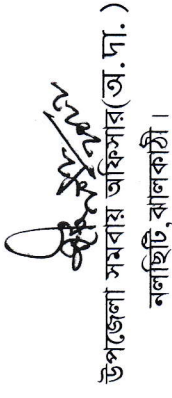 উপজেলা সমবায় অফিসার(অ.দা.)
নলছিটি, ঝালকাঠী।